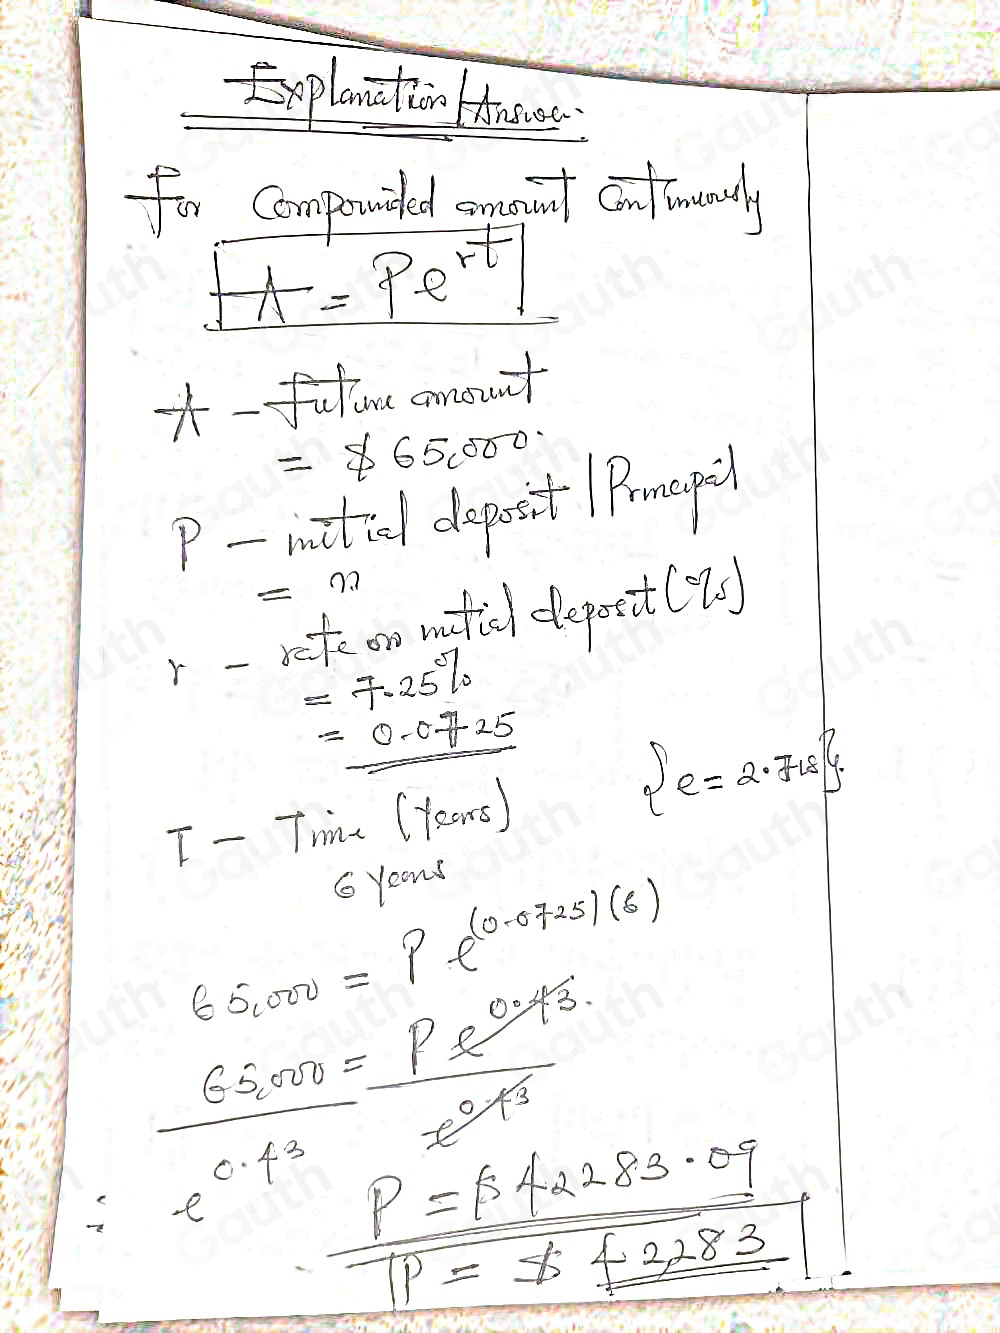 Explanation/Answer.
For Compounded amount Continuously
A = Pe^rt
A - future amount
= $65,000.
P - initial deposit | Principal
= n
r - rate on initial deposit (%)
= 7.25%
= 0.0725
{e = 2.718}.
T - Time (Years)
6 Years
65,000 = P e^(0.0725)(6)
65,000 = P e^0.43.
e^0.43 e^0.43
P = $42283.09
P = $42,283
Gauth